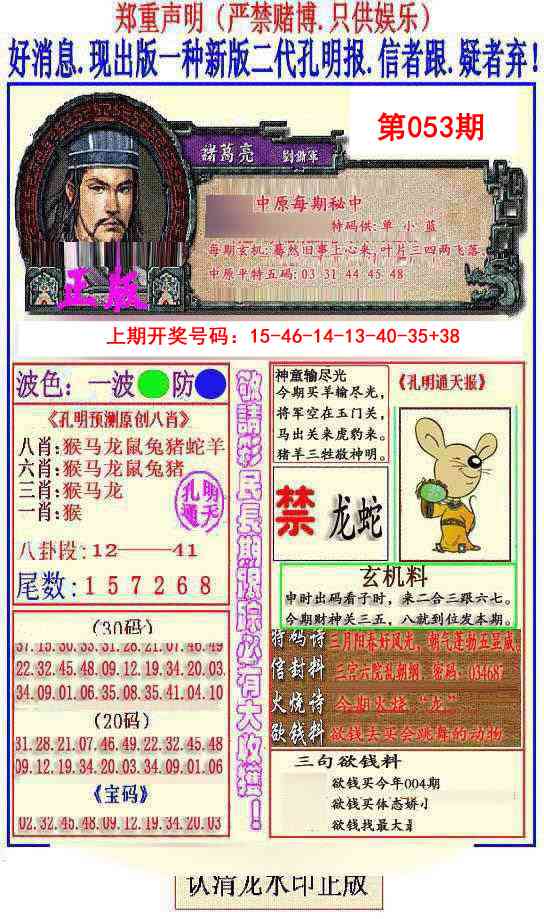 郑重声明（严禁赌博.只供娱乐）
好消息.现出版一种新版二代孔明报.信者跟.疑者弃!
第053期
諸葛亮 劉備軍
中原每期秘中
特码供:单 小 蓝
每期玄机:蓦然旧事上心来,叶片三四两飞落.
中原平特五码:03 31 44 45 48
正版
上期开奖号码：15-46-14-13-40-35+38
波色：一波 防
《孔明预测原创八肖》
八肖:猴马龙鼠兔猪蛇羊
六肖:猴马龙鼠兔猪
三肖:猴马龙
一肖:猴
孔明
通天
八卦段:12——41
尾数:157268
(30码)
37.15.30.33.31.28.21.07.46.49
22.32.45.48.09.12.19.34.20.03
34.09.01.06.35.08.35.41.04.10
(20码)
31.28.21.07.46.49.22.32.45.48
09.12.19.34.20.03.34.09.01.06
《宝码》
02.32.45.48.09.12.19.34.20.03
敬請彩民長期跟踪必有大收獲！
神童输尽光
今期买羊输尽光，
将军空在玉门关，
马出关来虎豹来。
猪羊三牲敬神明。
《孔明通天报》
禁 龙蛇
玄机料
申时出码看子时，来二合三跟六七。
今期财神关三五，八就到位发本期。
特码诗 三月阳春好风光，朝气蓬勃五显威。
信封料 三宫六院乱朝纲 密码：034687
火烧诗 今期火烧“龙”
欲钱料 欲钱去买会跳舞的动物
三句欲钱料
欲钱买今年004期
欲钱买体态娇小
欲钱找最大
认清龙水印正版